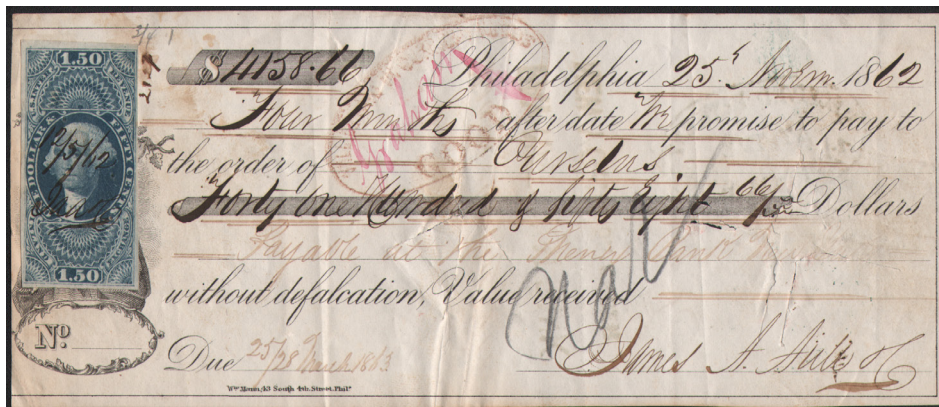 1.50
$4158.66 Philadelphia 25 Novem. 1862
Four Months after date We promise to pay to
the order of Ourselves
GOOD
Forty one Hundred & fifty Eight 66/100 Dollars
Payable at the Bank
without defalcation, Value received
1.50
2/5/62
No.
Due 25/28 March 1863
James A.
Wm Mann, 43 South 4th Street, Phila